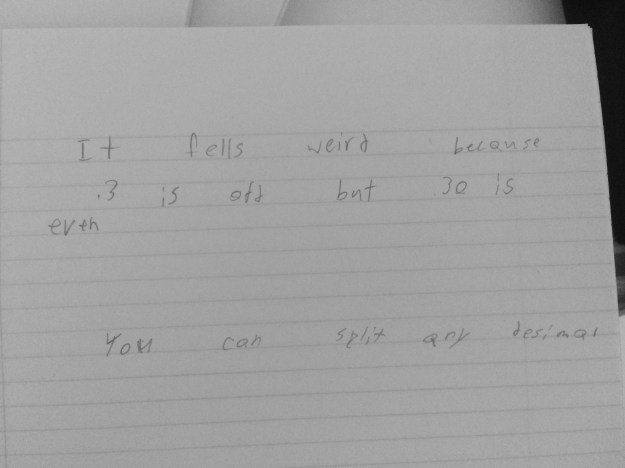 It fells weird because
.3 is odd but 30 is
even
You can split any desimal